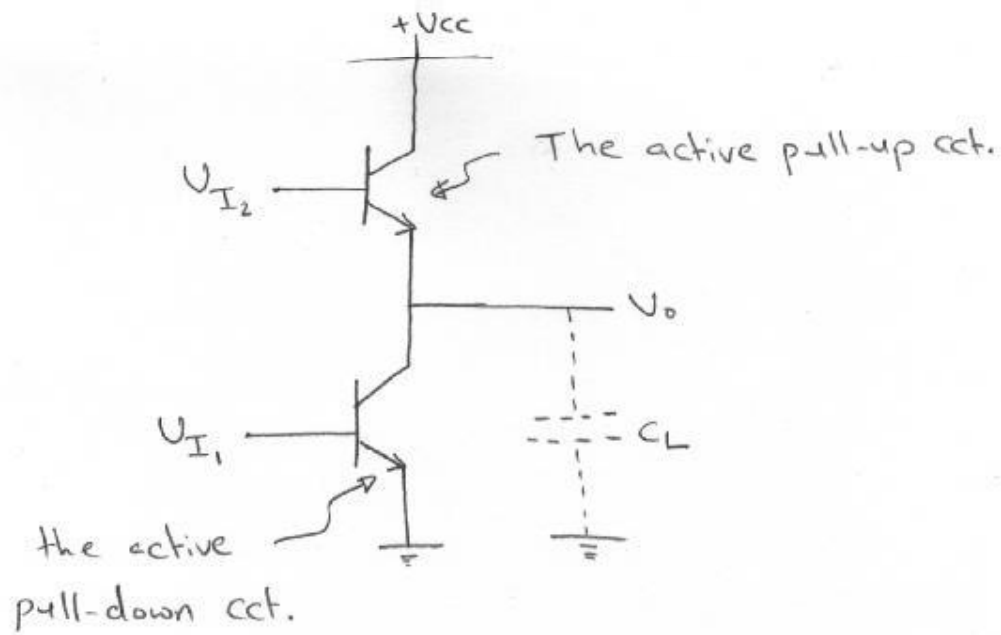 +Vcc
The active pull-up cct.
UI2
Uo
UI1
CL
the active
pull-down cct.